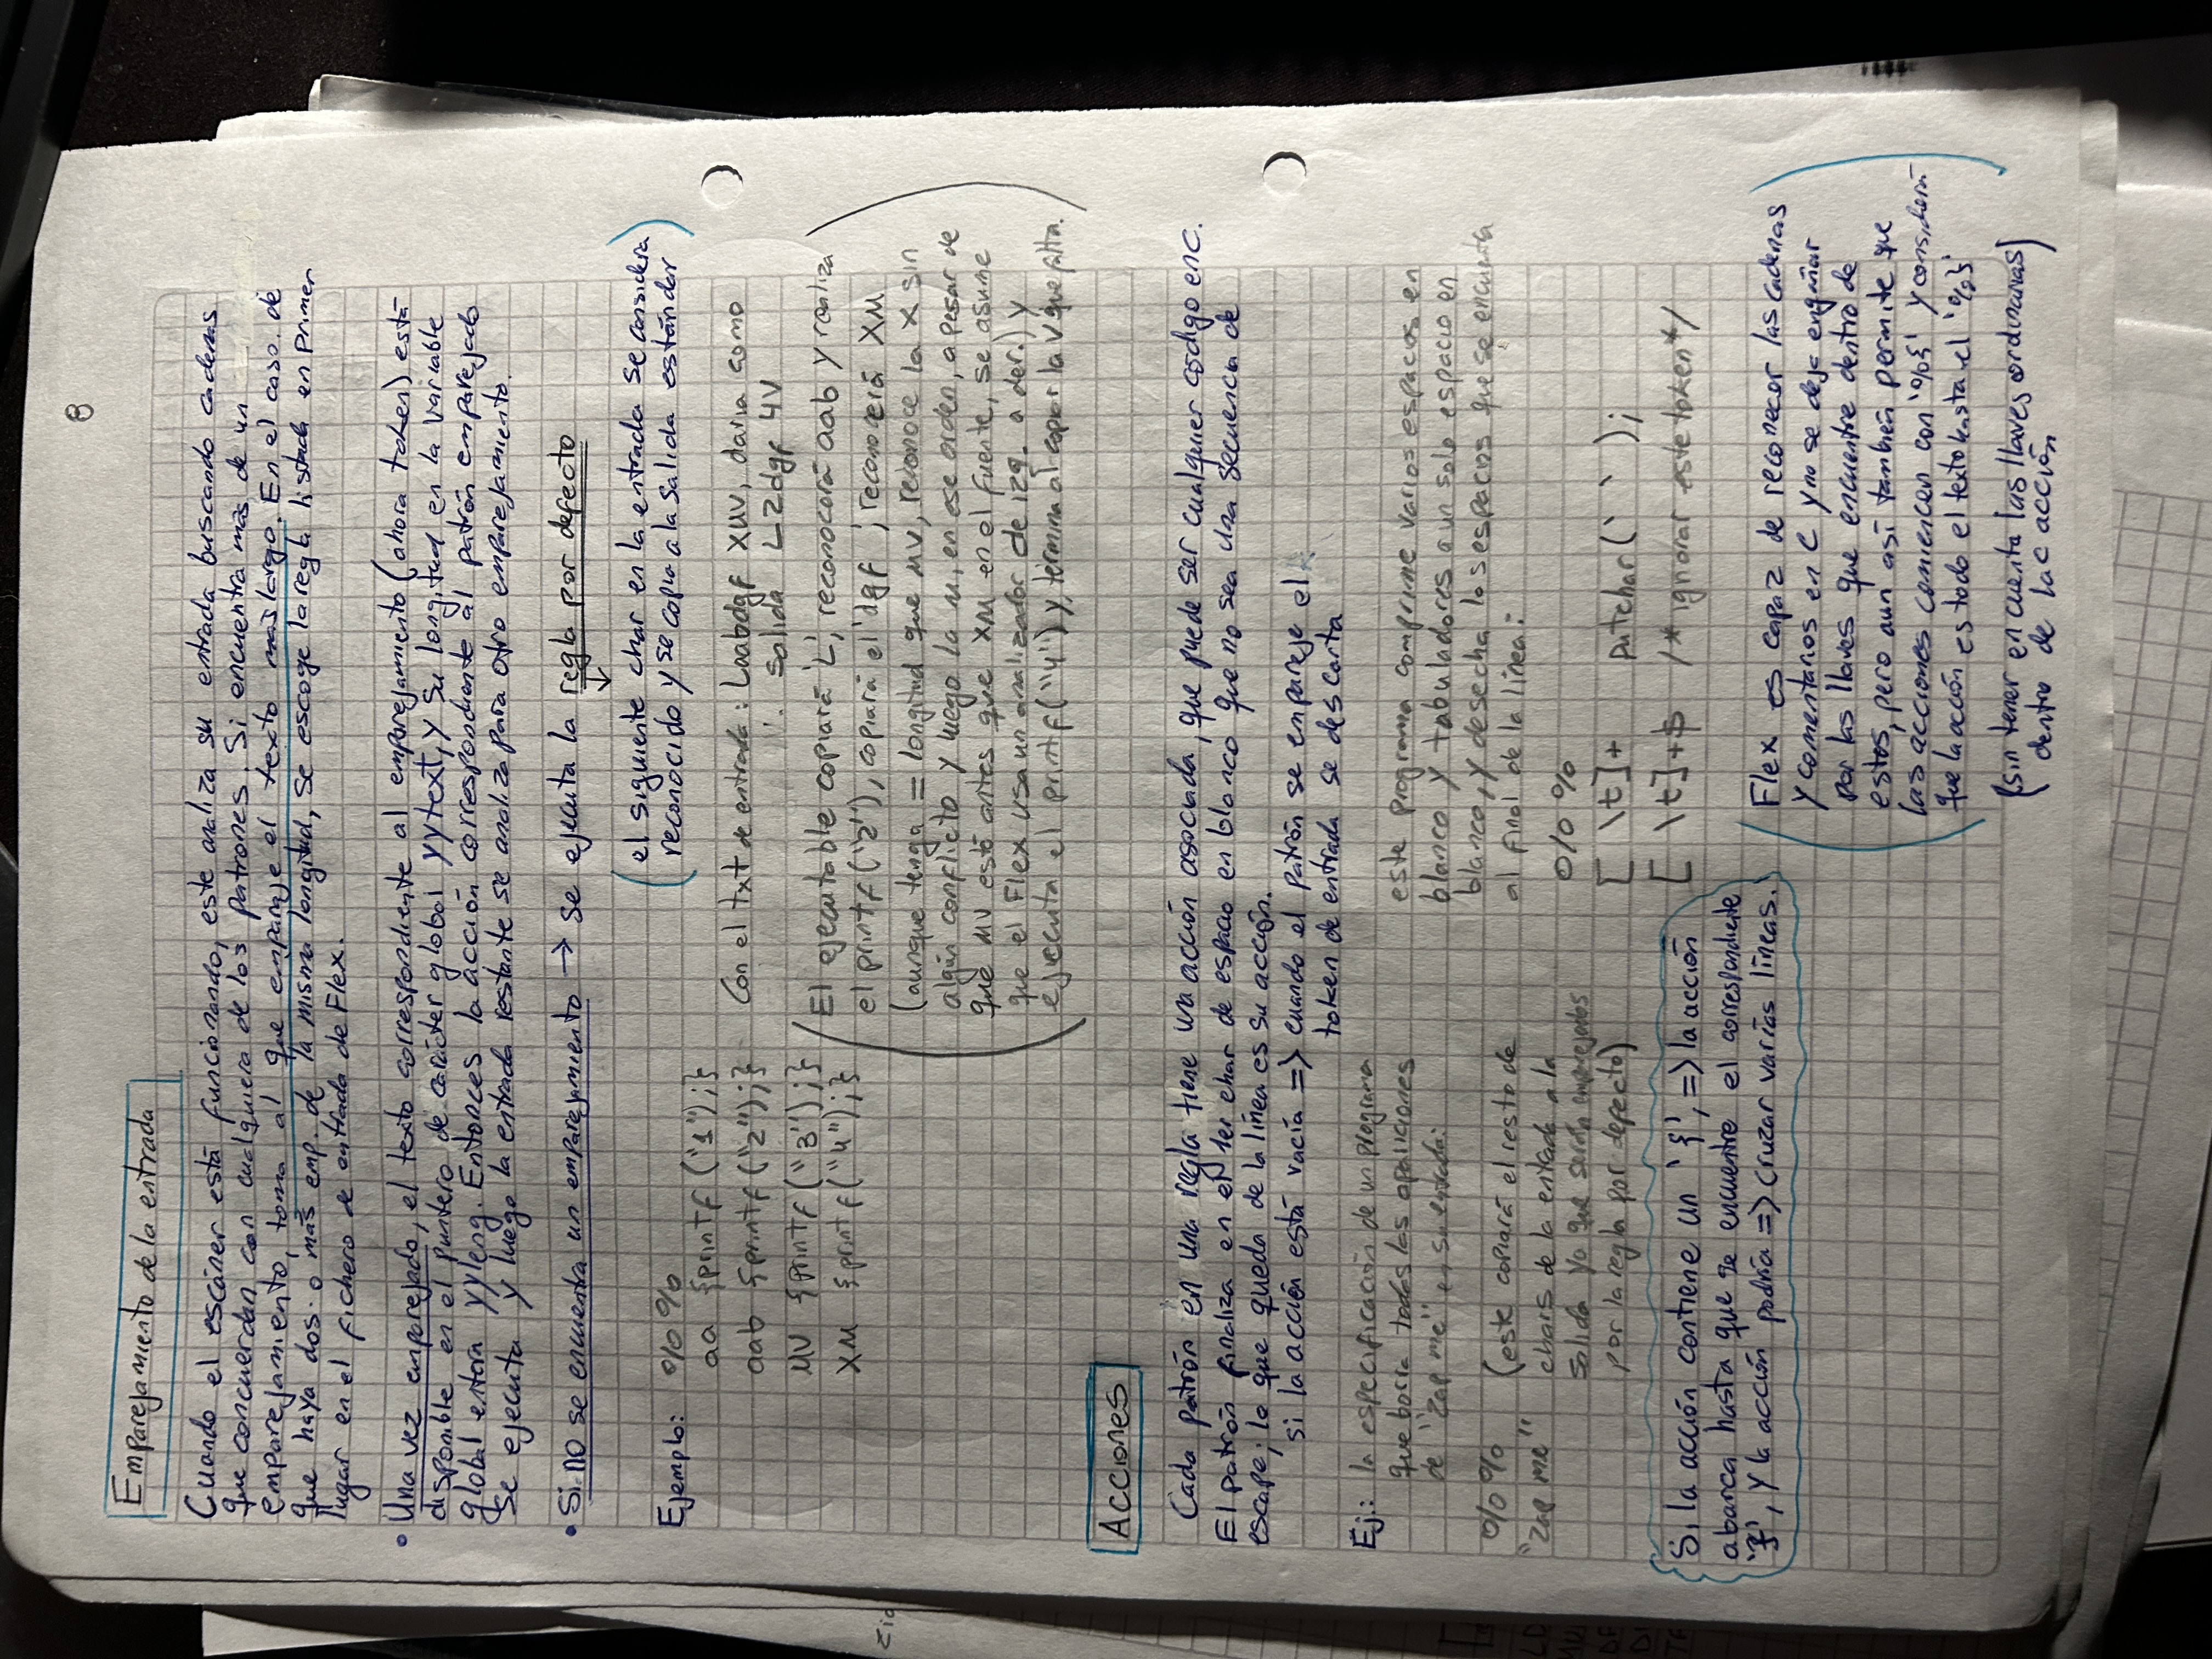 8
Emparejamiento de la entrada
Cuando el escáner está funcionando, este analiza su entrada buscando cadenas
que concuerdan con cualquiera de los patrones. Si encuentra más de un
emparejamiento, toma al que empareje el texto más largo. En el caso de
que haya dos o más emp. de la misma longitud, se escoge la regla listada en primer
lugar en el fichero de entrada de Flex.
• Una vez emparejado, el texto correspondiente al emparejamiento (ahora token) está
disponible en el puntero de carácter global yytext, y su longitud en la variable
global entera yyleng. Entonces la acción correspondiente al patrón emparejado
se ejecuta y luego la entrada restante se analiza para otro emparejamiento.
• Si no se encuentra un emparejamiento → se ejecuta la regla por defecto
↓
(el siguiente char en la entrada se considera
reconocido y se copia a la salida estándar)
Ejemplo: %%
aa {printf ("1");}
aab {printf ("2");}
uv {printf ("3");}
xu {printf ("4");}
Con el txt de entrada: Laabdgf xuv, daria como
salida L2dgf 4v
(El ejecutable copiará 'L', reconocerá aab y realiza
el printf ("2"), copiará el 'dgf ', reconocerá xu
(aunque tenga = longitud que uv, reconoce la x sin
algún conflicto y luego la u, en ese orden, a pesar de
que uv está antes que xu en el fuente, se asume
que el Flex usa un analizador de izq. a der.) y
ejecuta el printf("4") y termina al copiar la v que falta.)
Acciones
Cada patrón en una regla tiene una acción asociada, que puede ser cualquier código en C.
El patrón finaliza en el 1er char de espacio en blanco que no sea una secuencia de
escape; lo que queda de la línea es su acción.
si la acción está vacía => cuando el patrón se empareje el
token de entrada se descarta
Ej.: la especificación de un programa
que borra todas las apariciones
de "zap me" en su entrada:
%%
"zap me"
(este copiará el resto de
chars de la entrada a la
salida ya que serán emparejados
por la regla por defecto)
este programa comprime varios espacios en
blanco y tabuladores a un solo espacio en
blanco, y desecha los espacios que se encuentra
al final de la línea:
%%
[ \t]+ putchar(' ');
[ \t]+$ /* ignorar este token*/
Si la acción contiene un '{', => la acción
abarca hasta que se encuentre el correspondiente
'}', y la acción podría => cruzar varias líneas.
(Flex es capaz de reconocer las cadenas
y comentarios en C y no se deja engañar
por las llaves que encuentre dentro de
estos, pero aun así también permite que
las acciones comiencen con '%{' y considera
que la acción es todo el texto hasta el '%}')
(sin tener en cuenta las llaves ordinarias)
dentro de la c acción